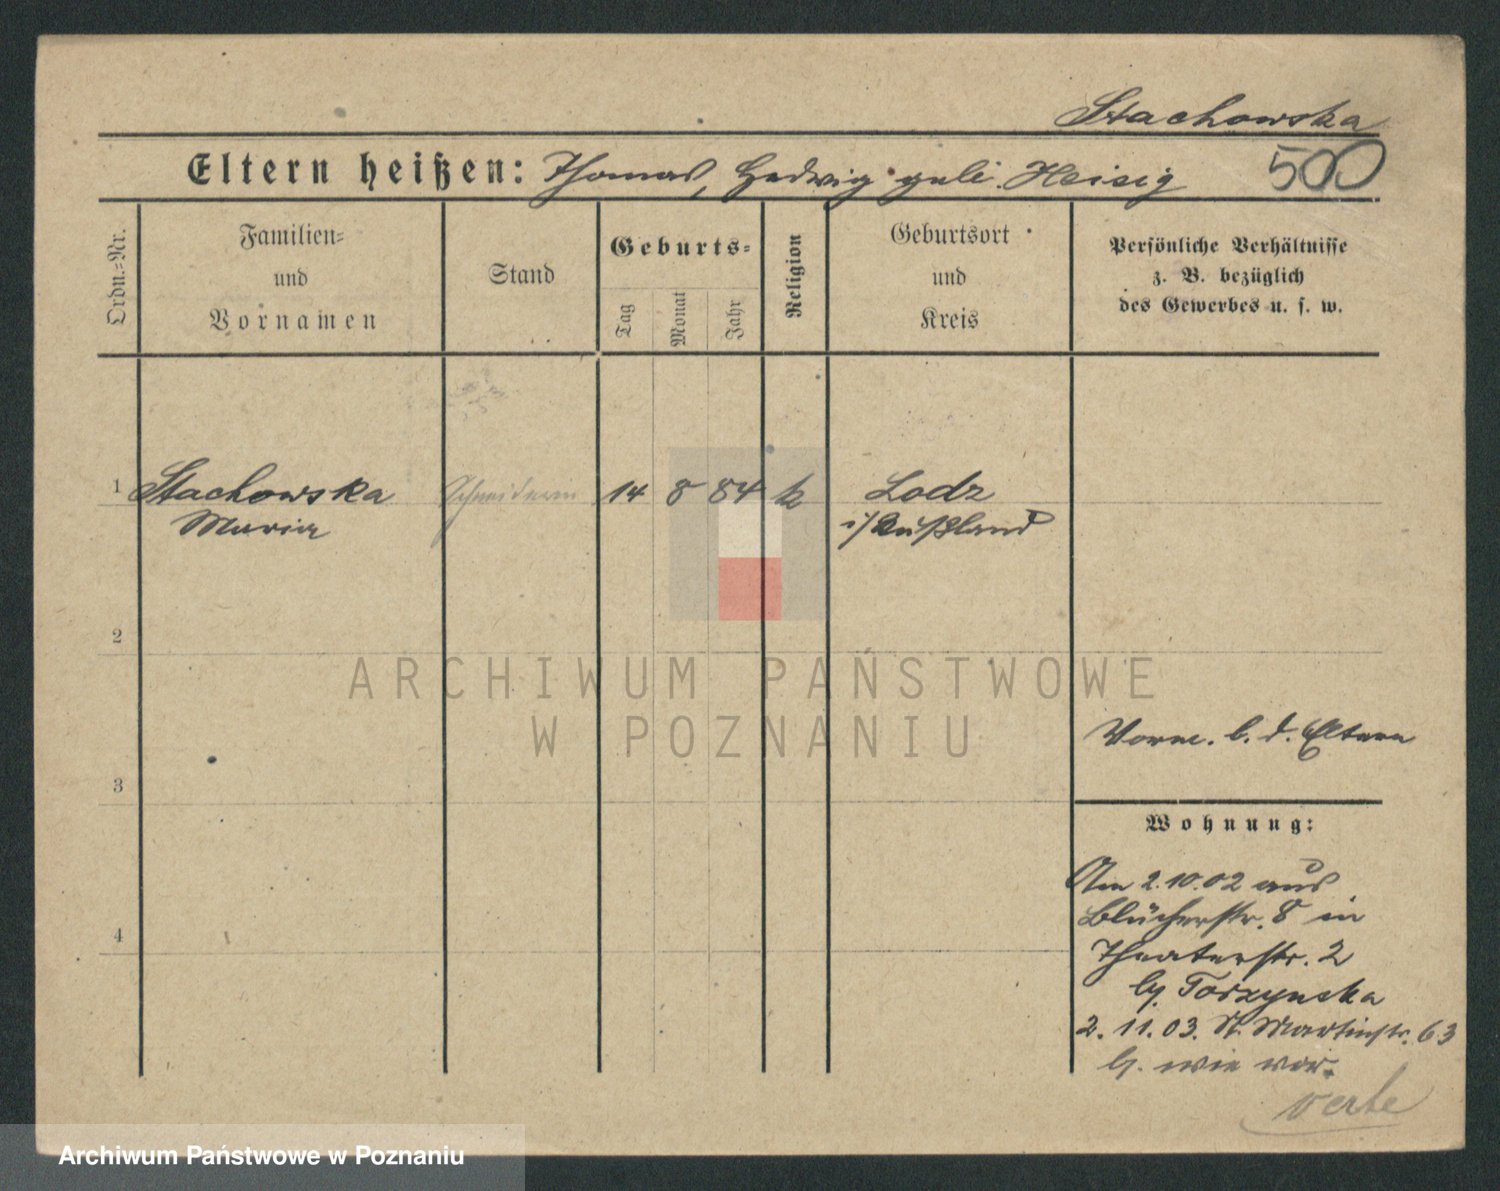 Stachowska
Eltern heißen: Thomas, Hedwig geb. Heisig 500
Ordn.=Nr.
Familien=
und
Vornamen
Stand
Geburts=
Tag
Monat
Jahr
Religion
Geburtsort
und
Kreis
Persönliche Verhältnisse
z. B. bezüglich
des Gewerbes u. s. w.
1 Stachowska Schneiderin 14 8 84 k Lodz
Maria i/Rußland
2
ARCHIWUM PAŃSTWOWE
W POZNANIU
Vorm. b. d. Eltern
3
Wohnung:
Am 2.10.02 aus
Blücherstr. 8 in
4
Theaterstr. 2
b/ Torzynska
2. 11. 03. St. Martinstr. 63
b/. wie vor.
verte
Archiwum Państwowe w Poznaniu